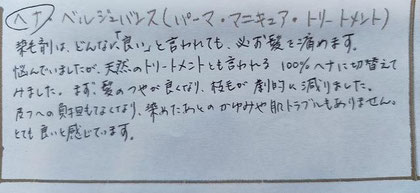 ヘナ ベルジュバンス(パーマ・マニキュア・トリートメント)
染毛剤は、どんなに「良い」と言われても、必ず髪を痛めます。
悩んでいましたが、天然のトリートメントとも言われる 100%ヘナに切替えて
みました。まず、髪のつやが良くなり、枝毛が劇的に減りました。
皮フへの負担もなくなり、染めたあとのかゆみや肌トラブルもありません。
とても良いと感じています。